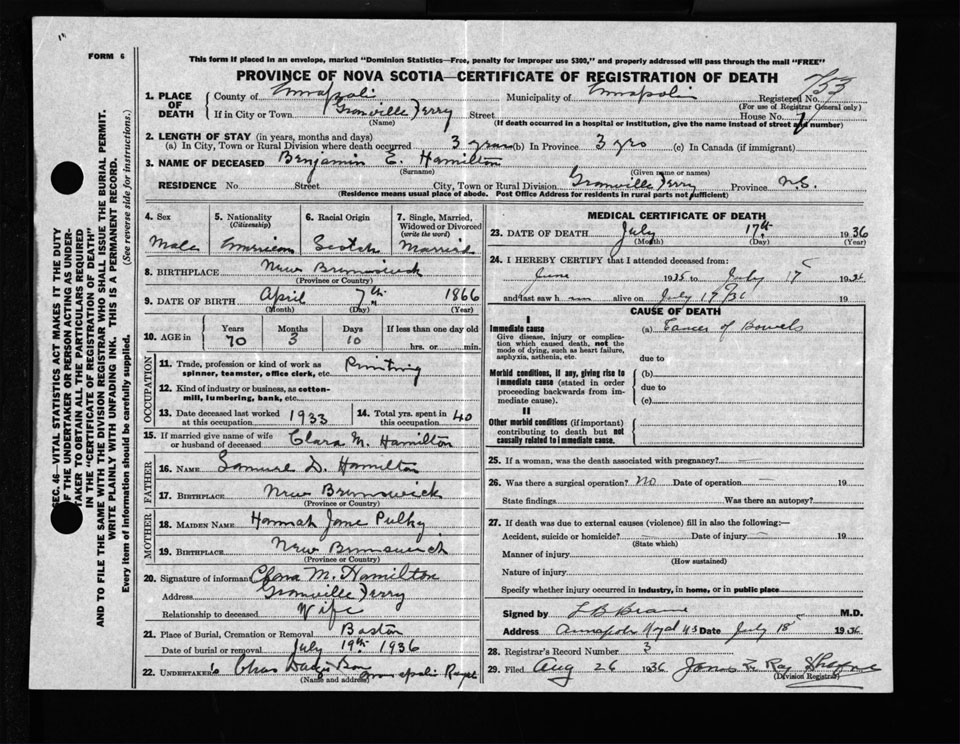 FORM 6
This form if placed in an envelope, marked "Dominion Statistics—Free, penalty for improper use $300," and properly addressed will pass through the mail "FREE"
PROVINCE OF NOVA SCOTIA—CERTIFICATE OF REGISTRATION OF DEATH
753
1. PLACE OF DEATH County of Annapolis Municipality of Annapolis Registered No.
(For use of Registrar General only)
If in City or Town Granville Ferry Street House No.
(Name) (If death occurred in a hospital or institution, give the name instead of street and number)
2. LENGTH OF STAY (in years, months and days)
(a) In City, Town or Rural Division where death occurred 3 years (b) In Province 3 yrs (c) In Canada (if immigrant)
3. NAME OF DECEASED Benjamin E. Hamilton
(Surname) (Given name or names)
RESIDENCE No Street City, Town or Rural Division Granville Ferry Province N.S.
(Residence means usual place of abode. Post Office Address for residents in rural parts not sufficient)
4. Sex 5. Nationality (Citizenship) 6. Racial Origin 7. Single, Married, Widowed or Divorced (write the word)
Male American Scotch Married
8. BIRTHPLACE New Brunswick
(Province or Country)
9. DATE OF BIRTH April 7th 1866
(Month) (Day) (Year)
10. AGE in Years Months Days If less than one day old
70 3 10 hrs. or min.
OCCUPATION
11. Trade, profession or kind of work as spinner, teamster, office clerk, etc. Printing
12. Kind of industry or business, as cotton-mill, lumbering, bank, etc.
13. Date deceased last worked at this occupation 1933 14. Total yrs. spent in 40
15. If married give name of wife or husband of deceased Clara M. Hamilton
FATHER
16. NAME Samuel D. Hamilton
17. BIRTHPLACE New Brunswick
(Province or Country)
MOTHER
18. MAIDEN NAME Hannah Jane
19. BIRTHPLACE New Brunswick
(Province or Country)
20. Signature of informant Clara M. Hamilton
Address Granville Ferry
Relationship to deceased Wife
21. Place of Burial, Cremation or Removal Boston
Date of burial or removal July 19th 1936
22. UNDERTAKER'S Chas
(Name and address)
MEDICAL CERTIFICATE OF DEATH
23. DATE OF DEATH July 17th 1936
(Month) (Day) (Year)
24. I HEREBY CERTIFY that I attended deceased from:
June 1935 to July 17 1936
and last saw h im alive on July 17/36 19
CAUSE OF DEATH
I
Immediate cause (a) Cancer of Bowels
Give disease, injury or complication which caused death, not the mode of dying, such as heart failure, asphyxia, asthenia, etc.
due to
Morbid conditions, if any, giving rise to immediate cause (stated in order proceeding backwards from immediate cause).
(b)
due to
(c)
II
Other morbid conditions (if important) contributing to death but not causally related to immediate cause.
25. If a woman, was the death associated with pregnancy? —
26. Was there a surgical operation? No Date of operation — 19
State findings Was there an autopsy?
27. If death was due to external causes (violence) fill in also the following:—
Accident, suicide or homicide? Date of injury 19
(State which)
Manner of injury
(How sustained)
Nature of injury
Specify whether injury occurred in industry, in home, or in public place
Signed by M.D.
Address Annapolis Royal NS Date July 18 1936
28. Registrar's Record Number 3
29. Filed Aug 26 1936
(Division Registrar)
SEC. 46—VITAL STATISTICS ACT MAKES IT THE DUTY
OF THE UNDERTAKER OR PERSON ACTING AS UNDER-
TAKER TO OBTAIN ALL THE PARTICULARS REQUIRED
IN THE "CERTIFICATE OF REGISTRATION OF DEATH"
AND TO FILE THE SAME WITH THE DIVISION REGISTRAR WHO SHALL ISSUE THE BURIAL PERMIT.
WRITE PLAINLY WITH UNFADING INK. THIS IS A PERMANENT RECORD.
Every item of information should be carefully supplied. (See reverse side for instructions.)